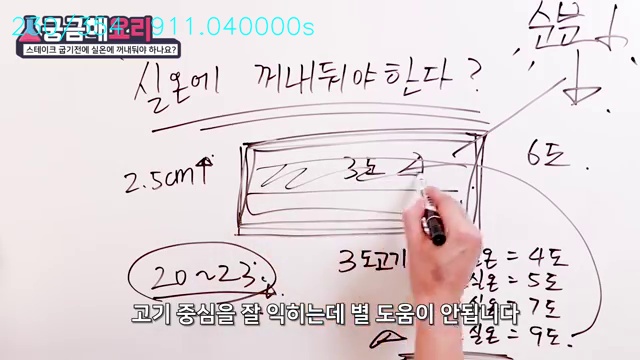 911.040000s
궁금해요리
스테이크 굽기전에 실온에 꺼내둬야 하나요?
수분
실온에 꺼내둬야한다?
2.5cm
3도
6도
20~23
3도고기
실온 = 4도
실온 = 5도
실온 = 7도
실온 = 9도
고기 중심을 잘 익히는데 별 도움이 안됩니다